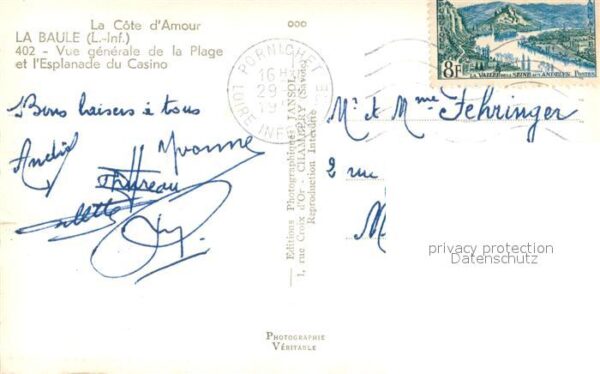 La Côte d'Amour
LA BAULE (L.-Inf.)
402 - Vue générale de la Plage
et l'Esplanade du Casino
Bons baisers à tous
André Yvonne
Thureau
PORNICHET
16 H
29
19
LOIRE INF
8F
LA VALLÉE DE LA SEINE AUX ANDELYS POSTES
Editions Photographiques JANSOL
1, rue Croix d'Or - CHAMBÉRY (Savoie)
Reproduction Interdite
PHOTOGRAPHIE
VÉRITABLE
M. et Mme Fehringer
2 rue
M
privacy protection
Datenschutz